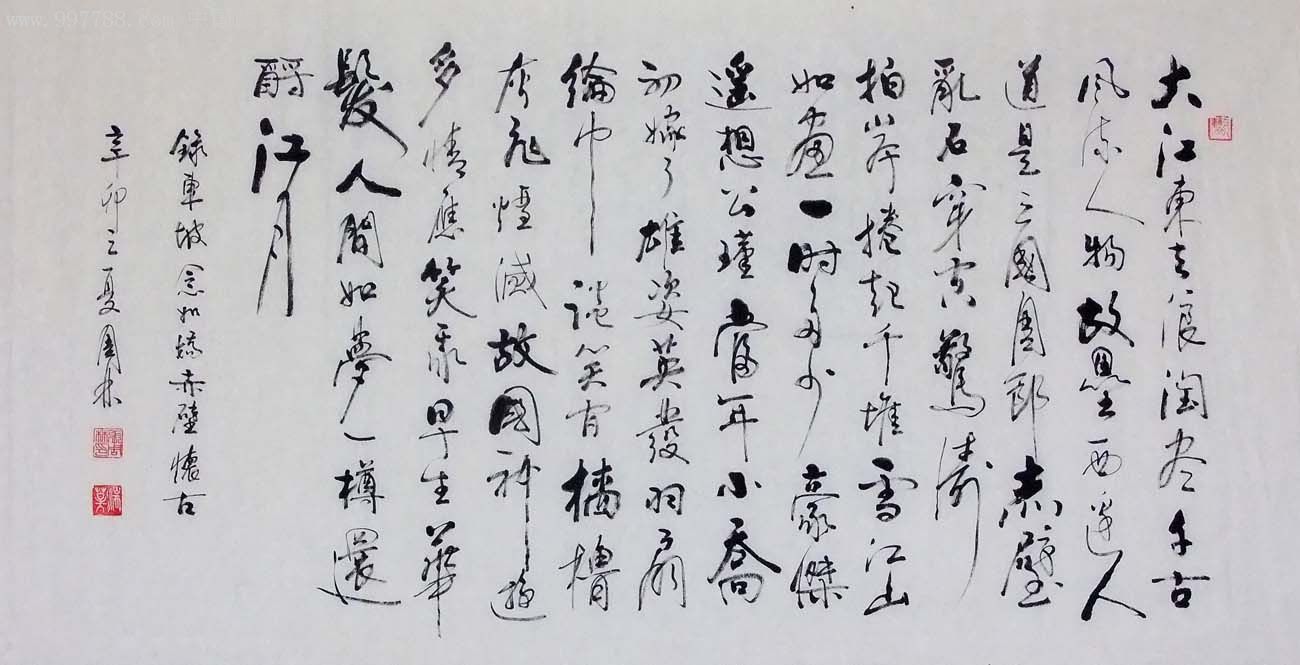 大江東去浪淘尽千古
風流人物故壘西邊人
道是三國周郎赤壁
亂石穿空驚濤
拍岸捲起千堆雪江山
如畫一時多少豪傑
遥想公瑾當年小喬
初嫁了雄姿英發羽扇
綸巾談笑間檣櫓
灰飛煙滅故國神遊
多情應笑我早生華
髮人間如夢一樽還
酹江月
錄東坡念奴嬌赤壁懷古
辛卯之夏周林
www.997788.com